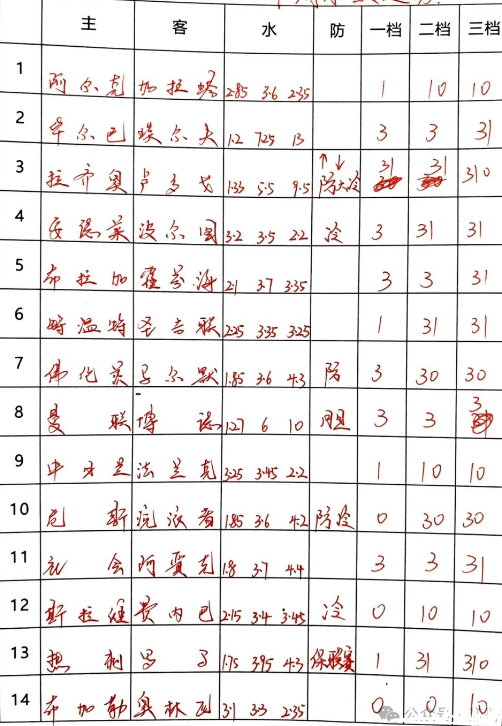 主 客 水 防 一档 二档 三档
1 阿尔克 加拉塔 2.85 3.6 2.35 1 10 10
2 毕尔巴 埃尔夫 1.2 7.25 13 3 3 31
3 拉齐奥 卢多戈 1.33 5.5 9.5 ↑↓ 防大冷 31 31 310
4 安德莱 波尔图 3.2 3.5 2.2 冷 3 31 31
5 布拉加 霍芬海 2.1 3.7 3.35 3 3 31
6 特温特 圣吉联 2.25 3.35 3.25 1 31 31
7 佛伦茨 马尔默 1.85 3.6 4.3 防 3 30 30
8 曼联 博德 1.27 6 10 胆 3 3 3
9 中日兰 法兰克 3.25 3.45 2.2 1 10 10
10 尼斯 流浪者 1.85 3.6 4.2 防冷 0 30 30
11 社会 阿贾克 1.8 3.7 4.4 3 3 31
12 斯拉维 费内巴 2.15 3.4 3.45 冷 0 10 10
13 热刺 罗马 1.75 3.95 4.3 保联赛 1 31 310
14 布加勒 奥林匹 3.1 3.3 2.35 0 0 10
公众号